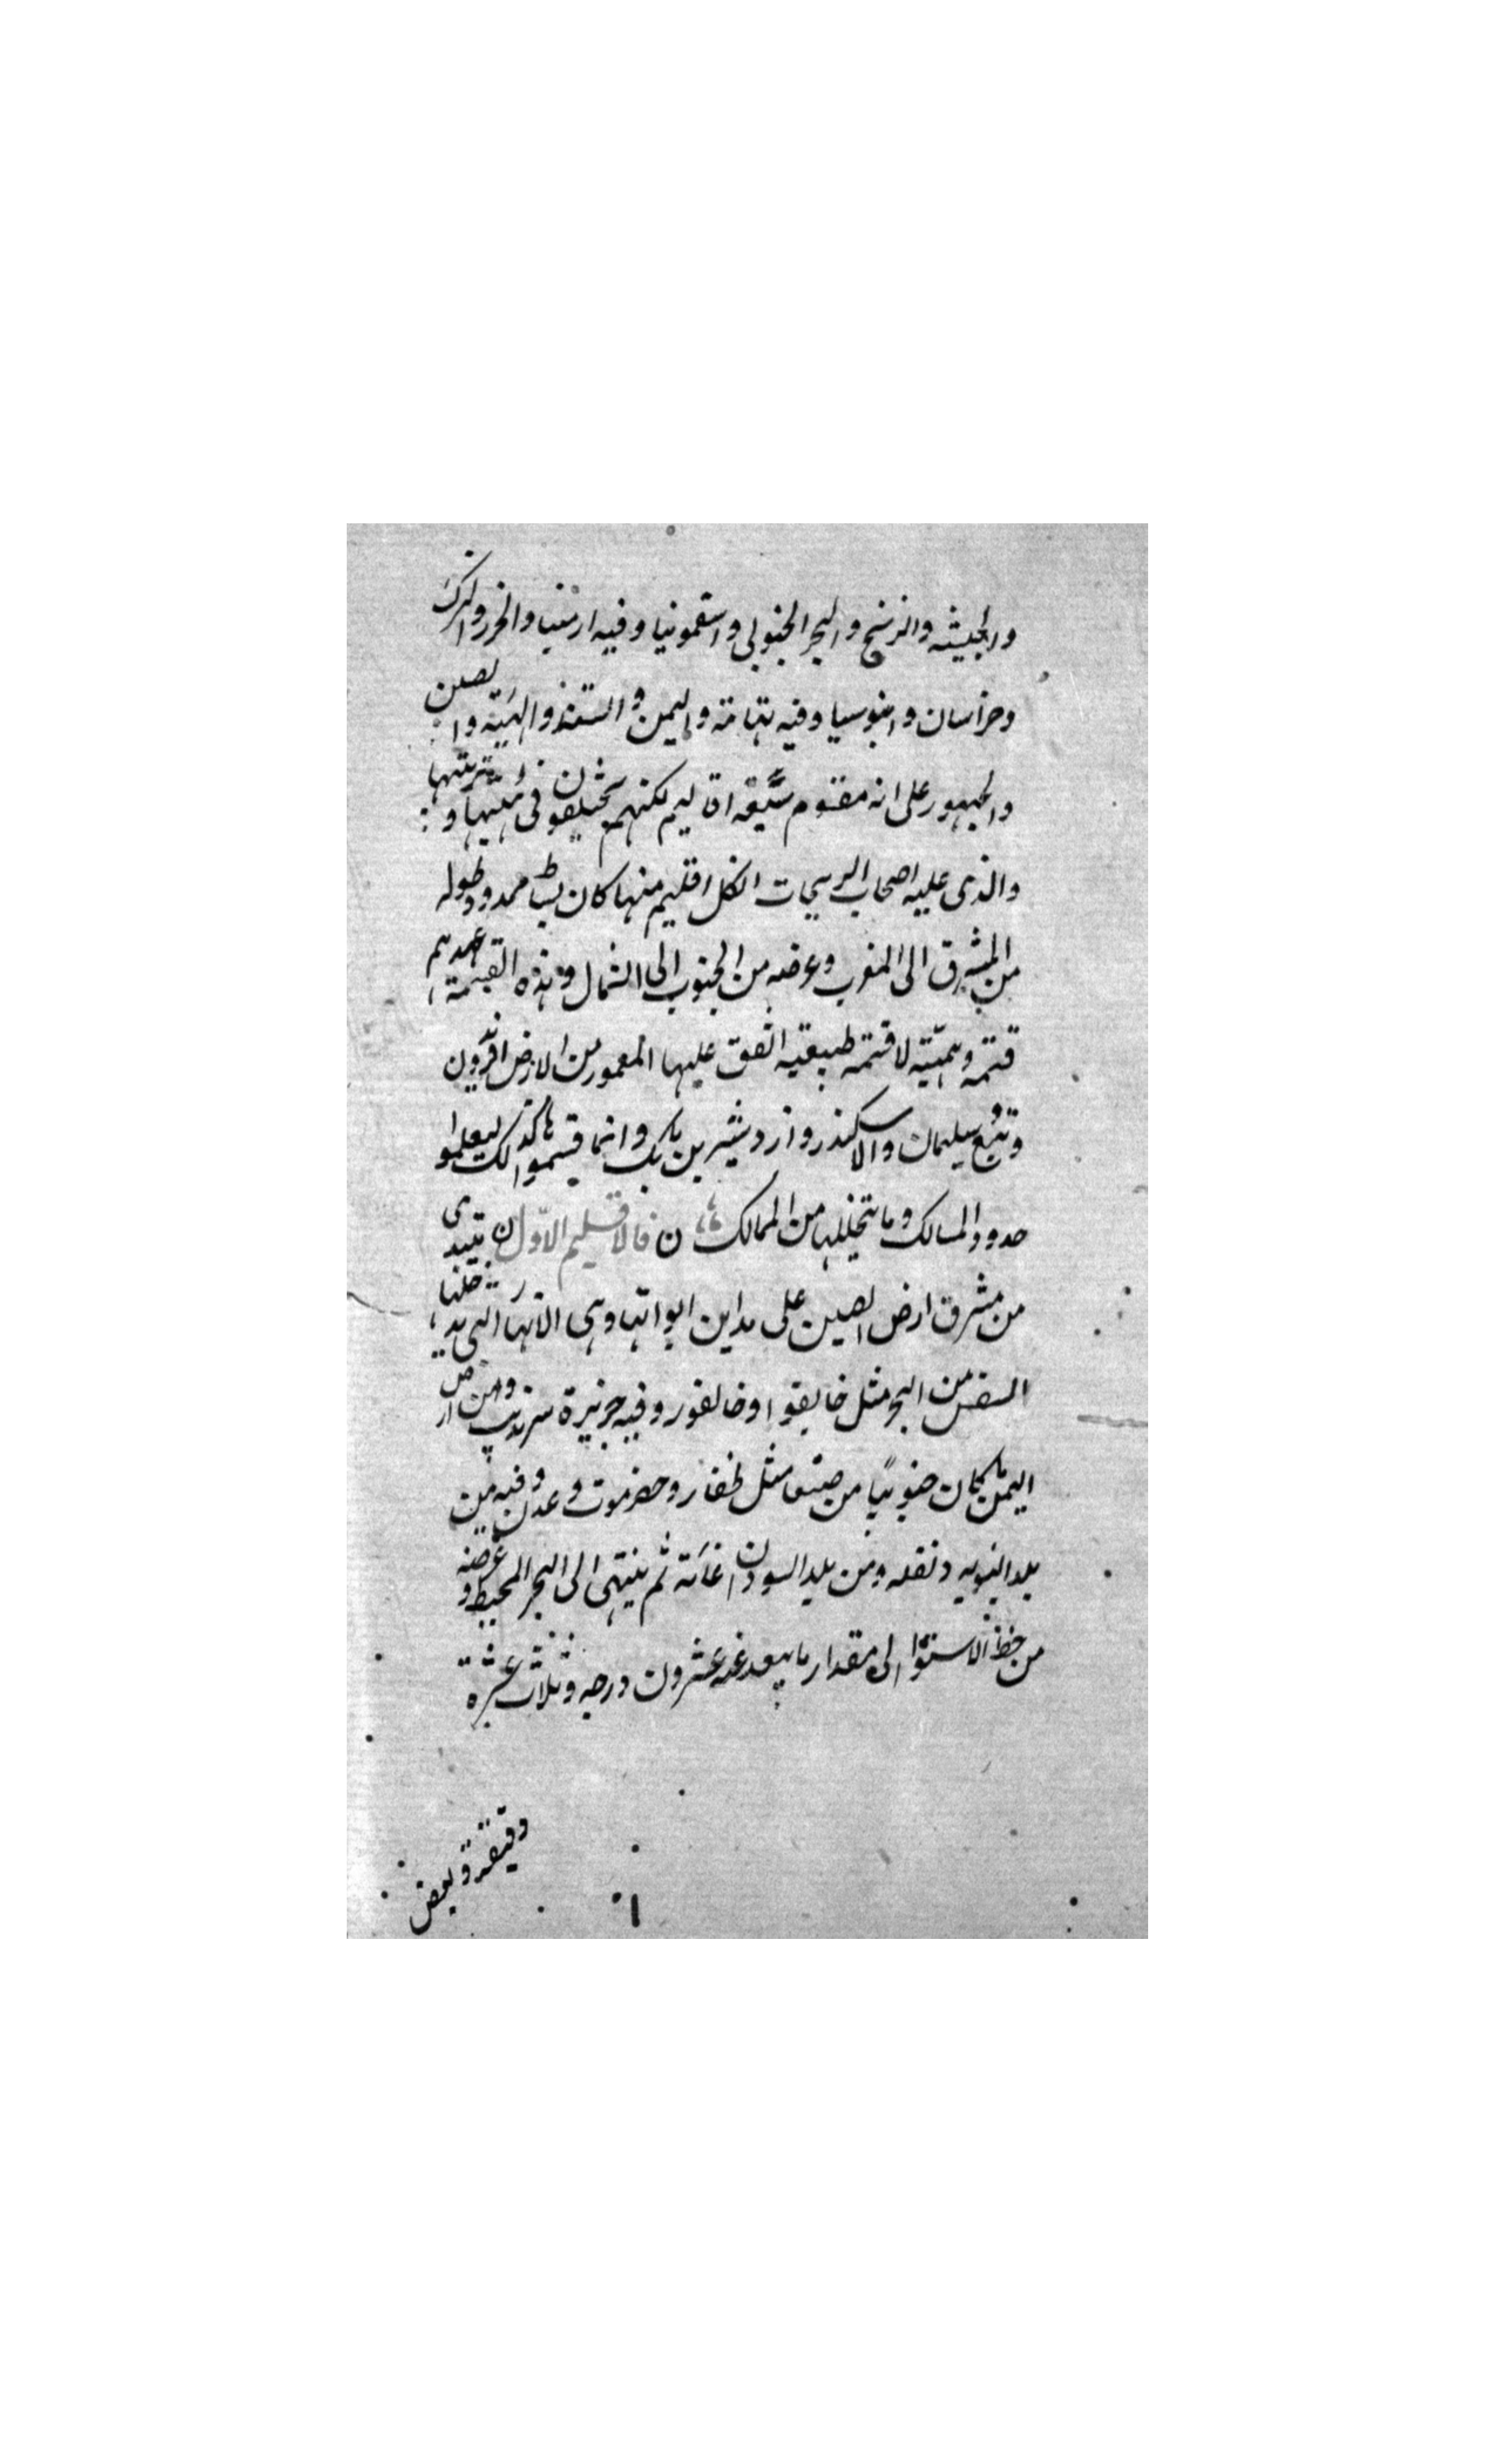 والحبشه والزنج والبحر الجنوبى واسقمونيا وفيه ارمنيا والخزر والترك
وخراسان وانبوسيا وفيه تهامة واليمن والسند والهند والصين
والجمهور على انه مقسوم سبعة اقاليم لكنهم يختلفون فى هيئتها و
والذى عليه اصحاب الزيجات ان كل اقليم منها كان بساط ممدود طوله
من المشرق الى المغرب وعرضه من الجنوب الى الشمال وهذه القسمة عندهم
قسمة وهميّة لا قسمة طبيعية اتفق عليها المعمور من الارض افريدون
وتبّع سليمان والاسكندر واردشير بن بابك وانما قسموها كذلك ليعلموا
حدود المسالك وما يتخللها من الممالك ن فالاقليم الاوّل ن يبتدى
من مشرق ارض الصين على مداين ابوابها وهى الانهار التى يدخلها
السفن من البحر مثل خانقوا وخانفور وفيه جزيرة سرنديب ومن ارض
اليمن ما كان جنوبيّا من صنعا مثل ظفار وحضرموت وعدن وفيه من
بلد النوبه دنقله ومن بلد السودان غانة ثم ينتهى الى البحر المحيط وعرضه
من خط الاستوا الى مقدار ما يبعد عنه عشرون درجه وثلاث عشرة
دقيقة وبعض